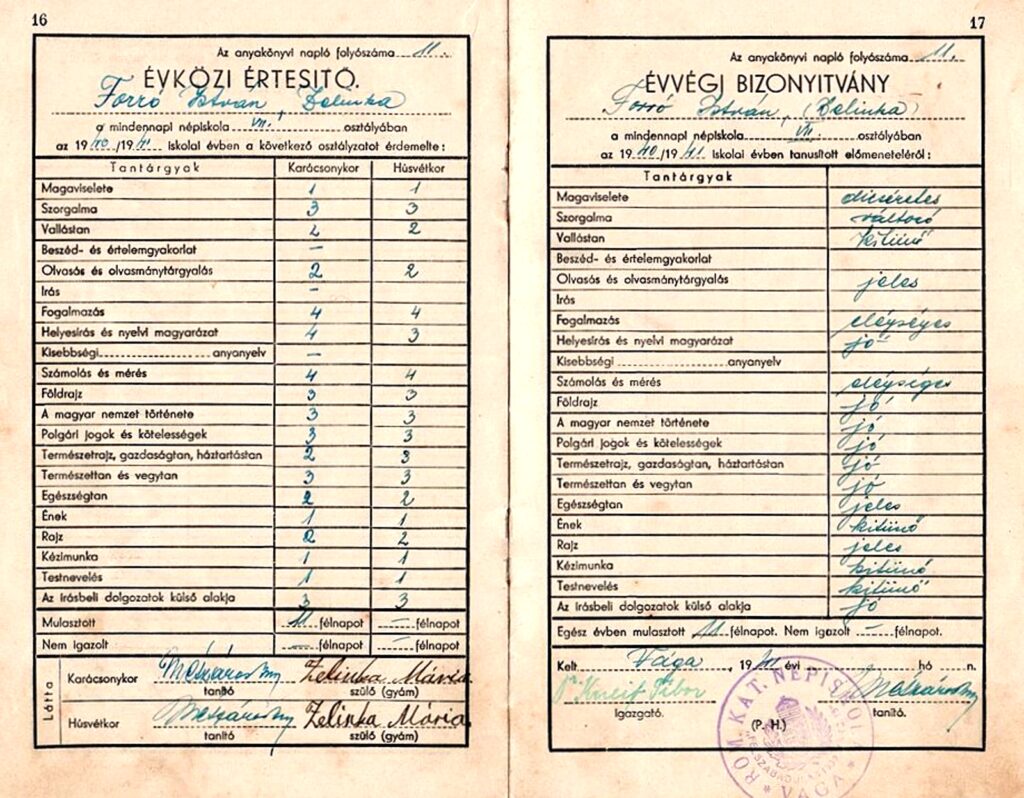 16
Az anyakönyvi napló folyószáma 11.
ÉVKÖZI ÉRTESITŐ.
Forró István, Zelinka
a mindennapi népiskola VII. osztályában
az 1940/1941. iskolai évben a következő osztályzatot érdemelte:
Tantárgyak Karácsonykor Húsvétkor
Magaviselete 1 1
Szorgalma 3 3
Vallástan 2 2
Beszéd- és értelemgyakorlat —
Olvasás és olvasmánytárgyalás 2 2
Irás —
Fogalmazás 4 4
Helyesirás és nyelvi magyarázat 4 3
Kisebbségi anyanyelv —
Számolás és mérés 4 4
Földrajz 3 3
A magyar nemzet története 3 3
Polgári jogok és kötelességek 3 3
Természetrajz, gazdaságtan, háztartástan 2 3
Természettan és vegytan 3 3
Egészségtan 2 2
Ének 1 1
Rajz 2 2
Kézimunka 1 1
Testnevelés 1 1
Az irásbeli dolgozatok külső alakja 3 3
Mulasztott 11 félnapot — félnapot
Nem igazolt — félnapot — félnapot
Látta
Karácsonykor Mészáros Zelinka Mária
tanító szülő (gyám)
Húsvétkor Mészáros Zelinka Mária
tanító szülő (gyám)
17
Az anyakönyvi napló folyószáma 11.
ÉVVÉGI BIZONYITVÁNY
Forró István, (Zelinka)
a mindennapi népiskola VII. osztályában
az 1940/1941. iskolai évben tanusított előmeneteléről:
Tantárgyak
Magaviselete dicséretes
Szorgalma változó
Vallástan kitünő
Beszéd- és értelemgyakorlat
Olvasás és olvasmánytárgyalás jeles
Irás
Fogalmazás elégséges
Helyesirás és nyelvi magyarázat jó
Kisebbségi anyanyelv
Számolás és mérés elégséges
Földrajz jó
A magyar nemzet története jó
Polgári jogok és kötelességek jó
Természetrajz, gazdaságtan, háztartástan jó
Természettan és vegytan jó
Egészségtan jeles
Ének kitünő
Rajz jeles
Kézimunka kitünő
Testnevelés kitünő
Az irásbeli dolgozatok külső alakja jó
Egész évben mulasztott 11 félnapot. Nem igazolt — félnapot.
Kelt Vága, 1941 évi hó n.
Kneif Tibor Mészáros
igazgató. (P. H.) tanító.
RÓM. KAT. NÉPISKOLA
* VÁGA *